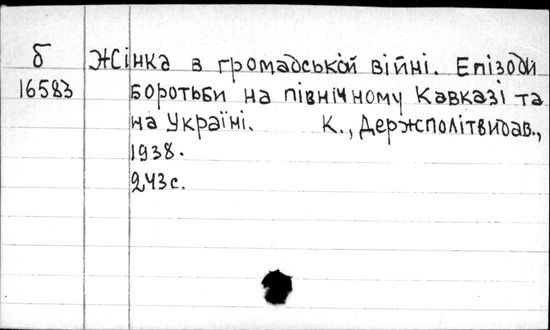 б Жінка в громадській війні. Епізоди
16583 боротьби на північному Кавказі та
на Україні. К., Держполітвидав.,
1938.
243с.